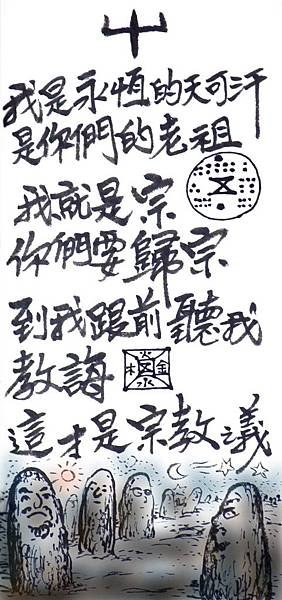 我是永恆的天可汗
是你們的老祖
我就是宗
你們要歸宗
到我跟前聽我
教誨
這才是宗教議